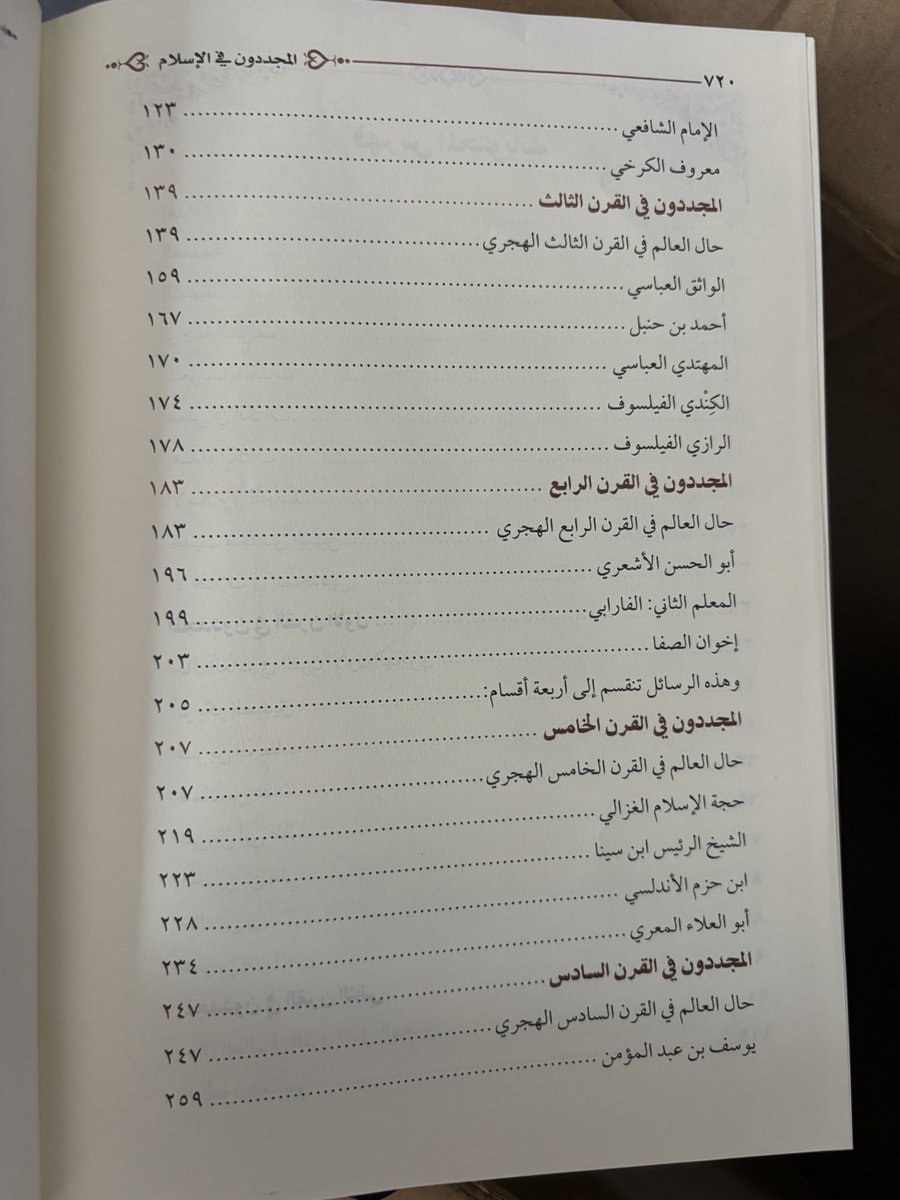 ٧٢٠ المجددون في الإسلام
الإمام الشافعي ١٢٣
معروف الكرخي ١٣٠
المجددون في القرن الثالث ١٣٩
حال العالم في القرن الثالث الهجري ١٣٩
الواثق العباسي ١٥٩
أحمد بن حنبل ١٦٧
المهتدي العباسي ١٧٠
الكِنْدي الفيلسوف ١٧٤
الرازي الفيلسوف ١٧٨
المجددون في القرن الرابع ١٨٣
حال العالم في القرن الرابع الهجري ١٨٣
أبو الحسن الأشعري ١٩٦
المعلم الثاني: الفارابي ١٩٩
إخوان الصفا ٢٠٣
وهذه الرسائل تنقسم إلى أربعة أقسام: ٢٠٥
المجددون في القرن الخامس ٢٠٧
حال العالم في القرن الخامس الهجري ٢٠٧
حجة الإسلام الغزالي ٢١٩
الشيخ الرئيس ابن سينا ٢٢٣
ابن حزم الأندلسي ٢٢٨
أبو العلاء المعري ٢٣٤
المجددون في القرن السادس ٢٤٧
حال العالم في القرن السادس الهجري ٢٤٧
يوسف بن عبد المؤمن ٢٥٩